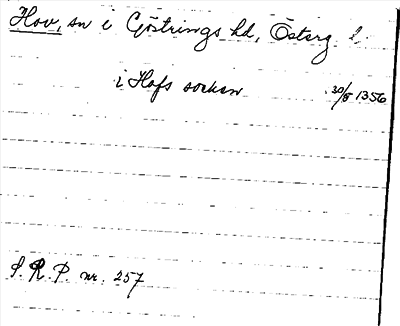 Hov, sn i Göstrings hd, Österg. l.
i Hofs socken 30/5 1356
S. R. P. nr. 257